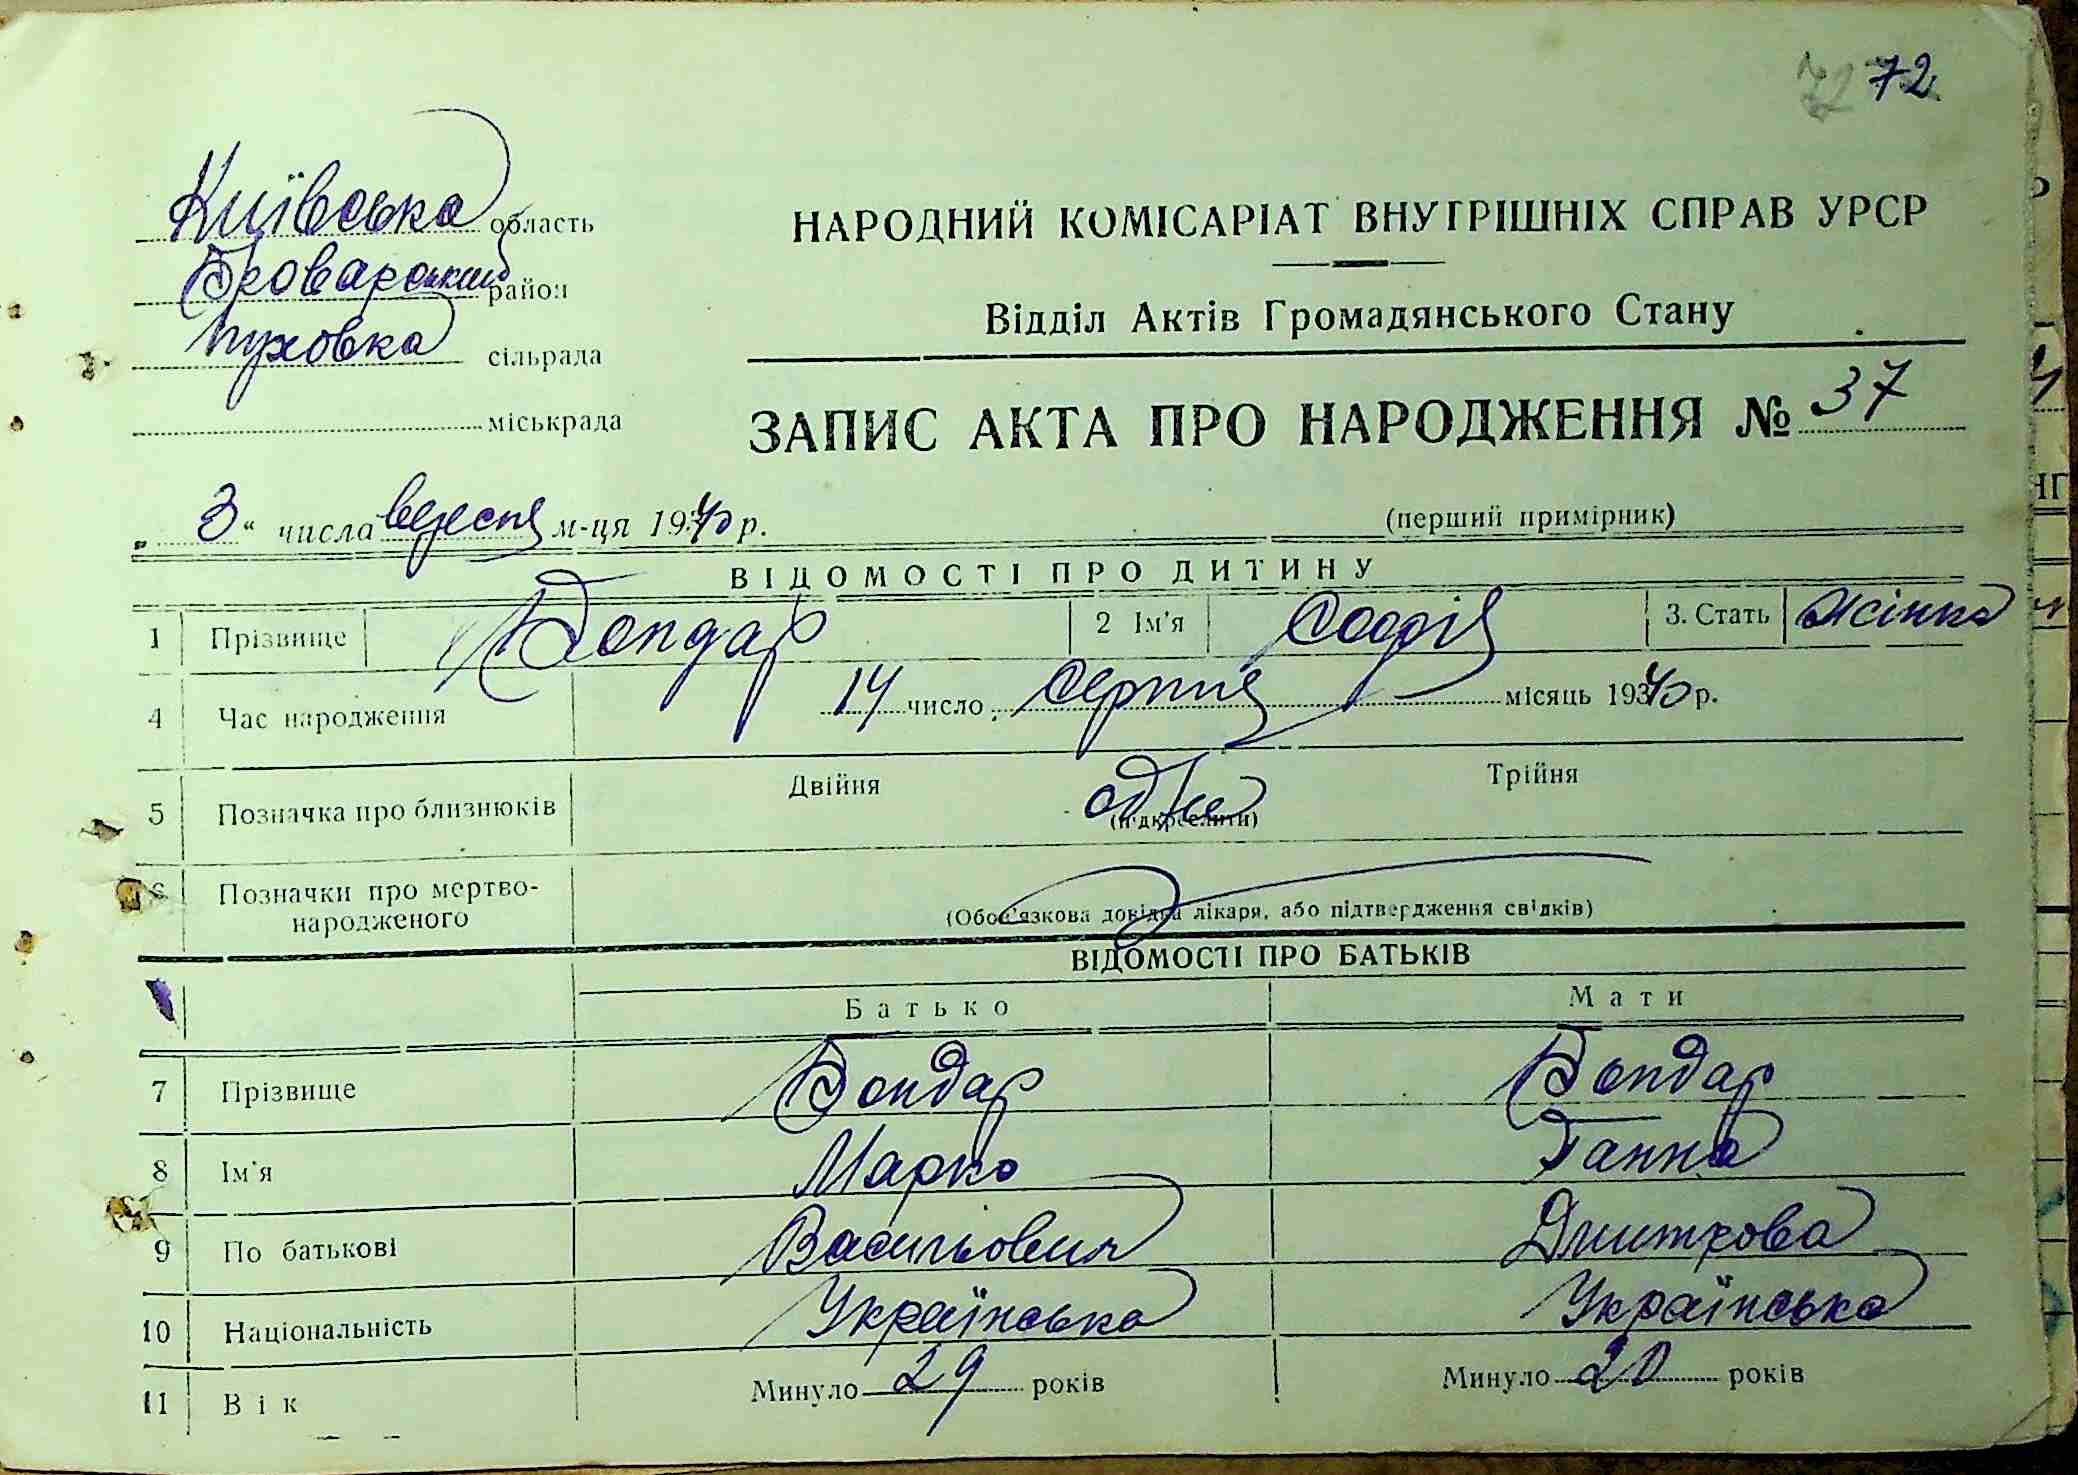 72 72
Київська область
Броварський район
Пуховка сільрада
міськрада
НАРОДНИЙ КОМІСАРІАТ ВНУТРІШНІХ СПРАВ УРСР
Відділ Актів Громадянського Стану
ЗАПИС АКТА ПРО НАРОДЖЕННЯ № 37
„ 3 “ числа вересня м-ця 1940 р.
(перший примірник)
ВІДОМОСТІ ПРО ДИТИНУ
1 Прізвище Бондар 2 Ім'я Софія 3. Стать Жінка
4 Час народження 14 число серпня місяць 1940 р.
5 Позначка про близнюків Двійня одне Трійня
(підкреслити)
6 Позначки про мертво-
народженого
(Обов'язкова довідка лікаря, або підтвердження свідків)
ВІДОМОСТІ ПРО БАТЬКІВ
Батько Мати
7 Прізвище Бондар Бондар
8 Ім'я Марко Ганна
9 По батькові Васильович Дмитрова
10 Національність Українська Українська
11 Вік Минуло 29 років Минуло 20 років